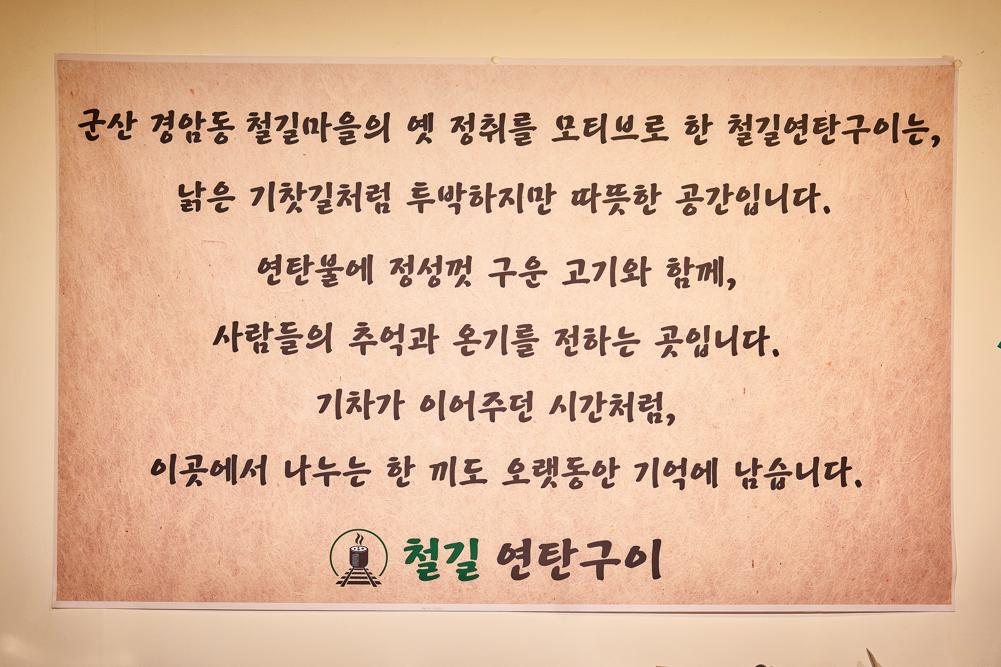 군산 경암동 철길마을의 옛 정취를 모티브로 한 철길연탄구이는,
낡은 기찻길처럼 투박하지만 따뜻한 공간입니다.
연탄불에 정성껏 구운 고기와 함께,
사람들의 추억과 온기를 전하는 곳입니다.
기차가 이어주던 시간처럼,
이곳에서 나누는 한 끼도 오랫동안 기억에 남습니다.
철길 연탄구이